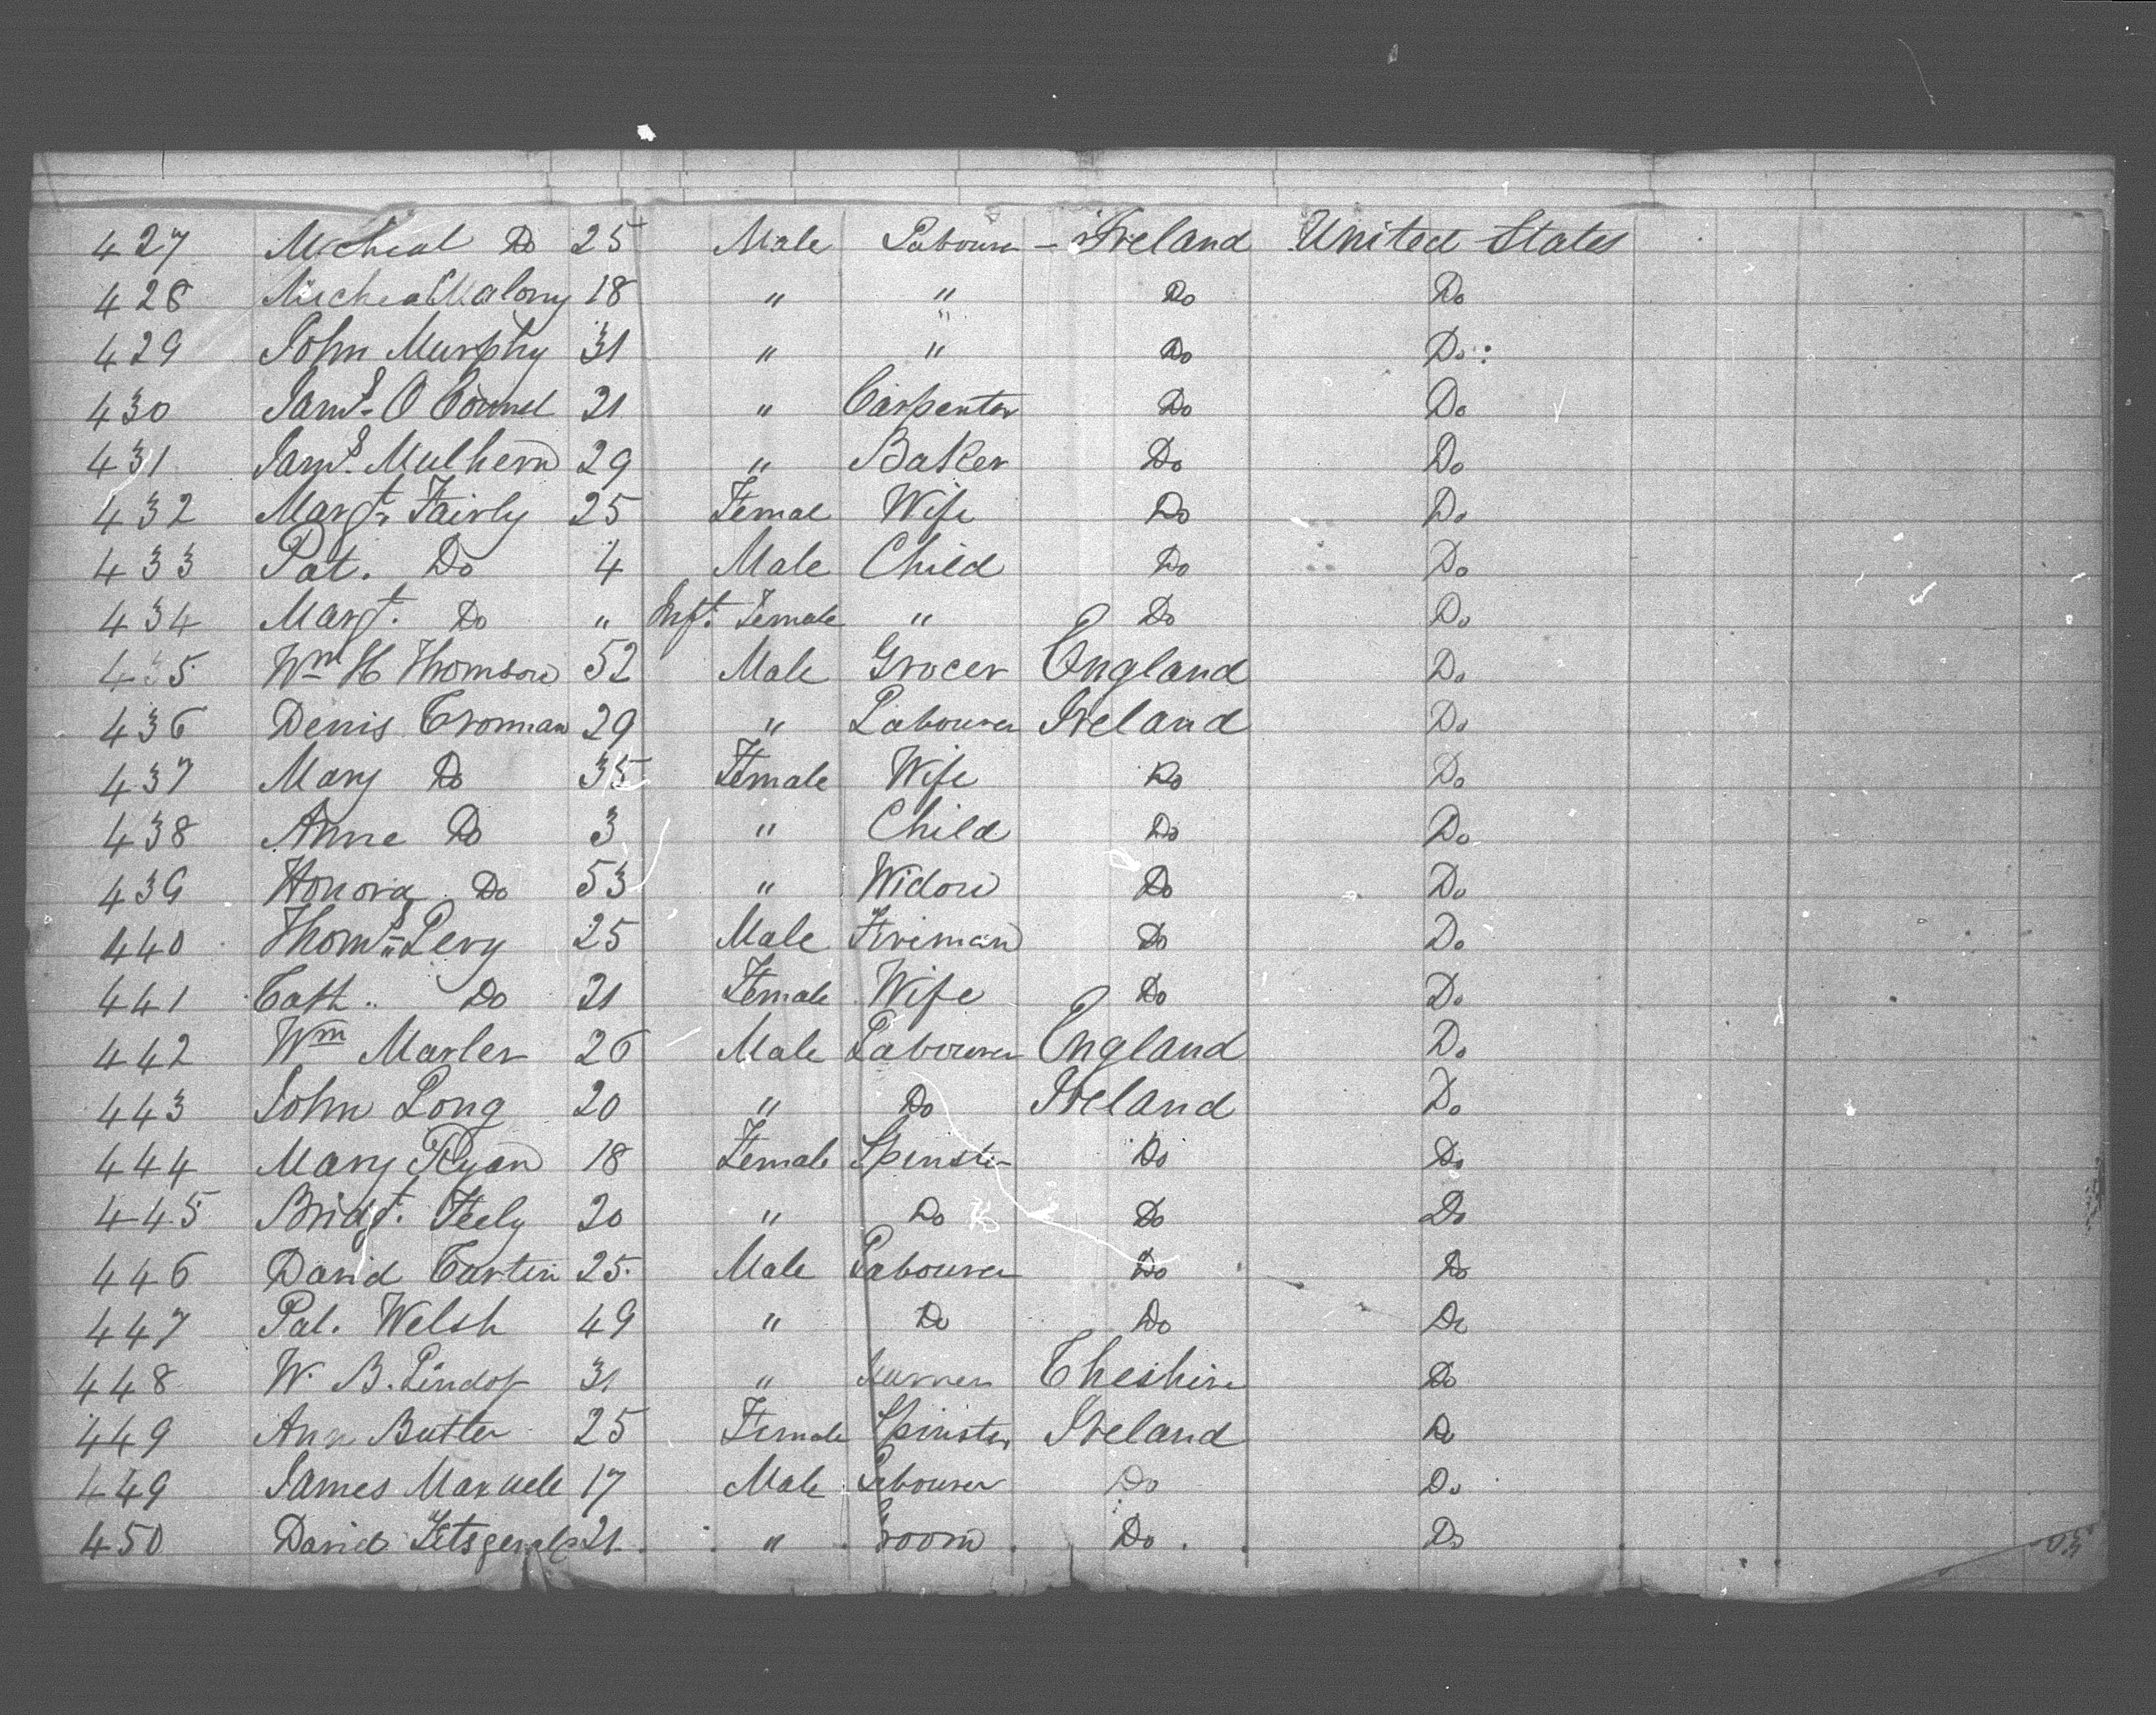 427 Micheal Do 25 Male Labourer - Ireland United States
428 Micheal Malony 18 " " Do Do
429 John Murphy 31 " " Do Do
430 Jams. O Connel 21 " Carpenter Do Do
431 Jams. Mulhern 29 " Baker Do Do
432 Margt. Fairly 25 Femal Wife Do Do
433 Pat. Do 4 Male Child Do Do
434 Margt. Do " Inft. Female " Do Do
435 Wm H Thomson 52 Male Grocer England Do
436 Denis Cronnan 29 " Labourer Ireland Do
437 Mary Do 35 Female Wife Do Do
438 Anne Do 3 " Child Do Do
439 Honora Do 53 " Widow Do Do
440 Thoms. Levy 25 Male Fireman Do Do
441 Cath.. Do 21 Female Wife Do Do
442 Wm Marler 26 Male Labourer England Do
443 John Long 20 " Do Ireland Do
444 Mary Ryan 18 Female Spinster Do Do
445 Bridgt. Feely 20 " Do Do Do
446 David 25 Male Labourer Do Do
447 Pat. Welsh 49 " Do Do Do
448 W. B. Lindop 31 " Cheshire Do
449 Ann Butler 25 Female Spinster Ireland Do
449 James Maxwell 17 Male Labourer Do Do
450 David Fitsgerald 21 " Groom Do Do